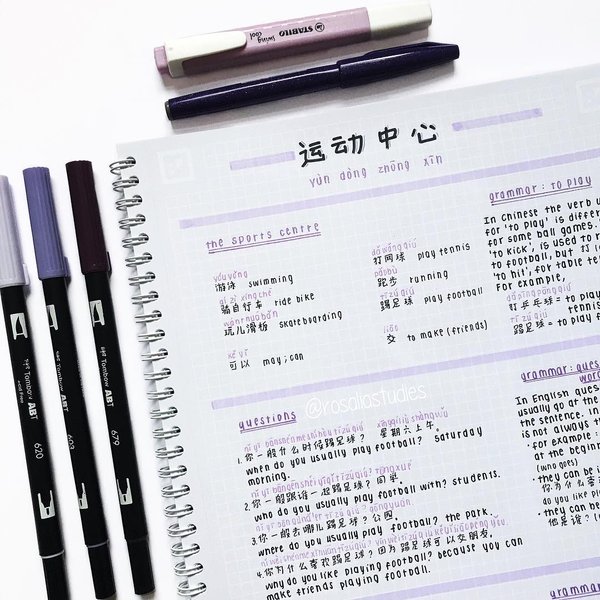 STABILO
swing cool
运动中心
yùn dòng zhōng xīn
the sports centre
yóu yǒng
游泳 swimming
qí zì xíng chē
骑自行车 ride bike
wánr huá bǎn
玩儿滑板 skateboarding
kě yǐ
可以 may; can
dǎ wǎng qiú
打网球 play tennis
pǎo bù
跑步 running
tī zú qiú
踢足球 play football
jiāo
交 to make (friends)
@rosaliastudies
questions
1. 你一般什么时候踢足球? 星期六上午。
when do you usually play football? Saturday
morning.
2. 你一般跟谁一起踢足球? 同学。
who do you usually play football with? students.
3. 你一般去哪儿踢足球? 公园。
where do you usually play football? the park.
4. 你为什么喜欢踢足球? 因为踢足球可以交朋友。
why do you like playing football? because you can
make friends playing football.
grammar: to play
In Chinese the verb u
for 'to play' is differ
for some ball games.
'to kick', is used to r
to football, but 打 (
'to hit', for table te
For example,
dǎ pīng pāng qiú
打乒乓球 = to play
tennis
tī zú qiú
踢足球 = to play f
grammar: ques
word
In English ques
usually go at the
the sentence. In
is not always t
for example:
at the beginn
(who goes)
they can be i
do you like play
they can be
他是谁? (
Tombow ABT
620
Tombow ABT
603
Tombow ABT
679